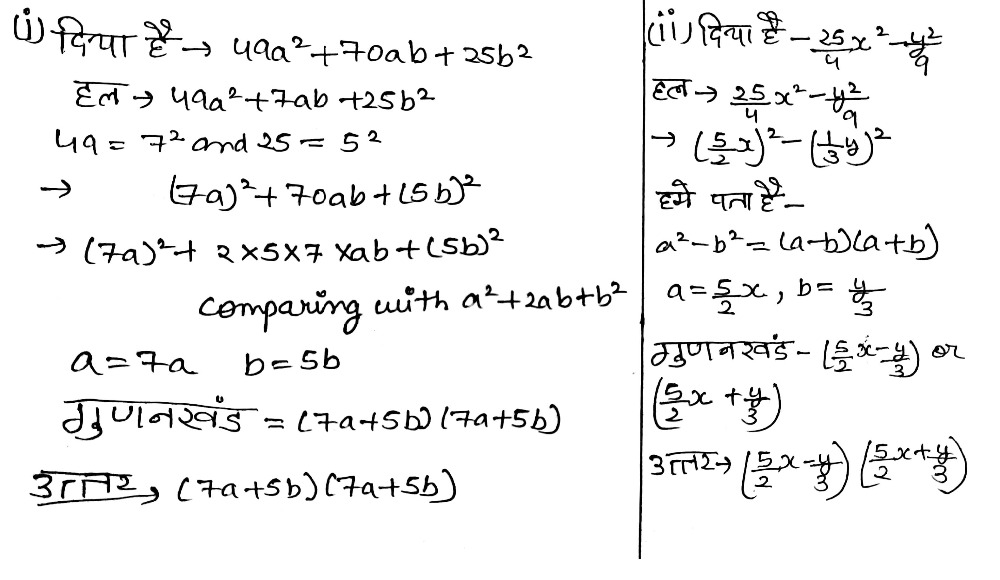 (i) दिया है → 49a²+70ab+25b²
हल → 49a²+7ab+25b²
49 = 7² and 25 = 5²
→ (7a)²+70ab+(5b)²
→ (7a)²+ 2×5×7×ab+(5b)²
comparing with a²+2ab+b²
a=7a b=5b
गुणनखंड = (7a+5b)(7a+5b)
उत्तर → (7a+5b)(7a+5b)
(ii) दिया है - 25/4 x² - y²/9
हल → 25/4 x² - y²/9
→ (5/2 x)² - (1/3 y)²
हमे पता है -
a²-b² = (a-b)(a+b)
a = 5/2 x , b = y/3
गुणनखंड - (5/2 x - y/3) or
(5/2 x + y/3)
उत्तर → (5/2 x - y/3) (5/2 x + y/3)